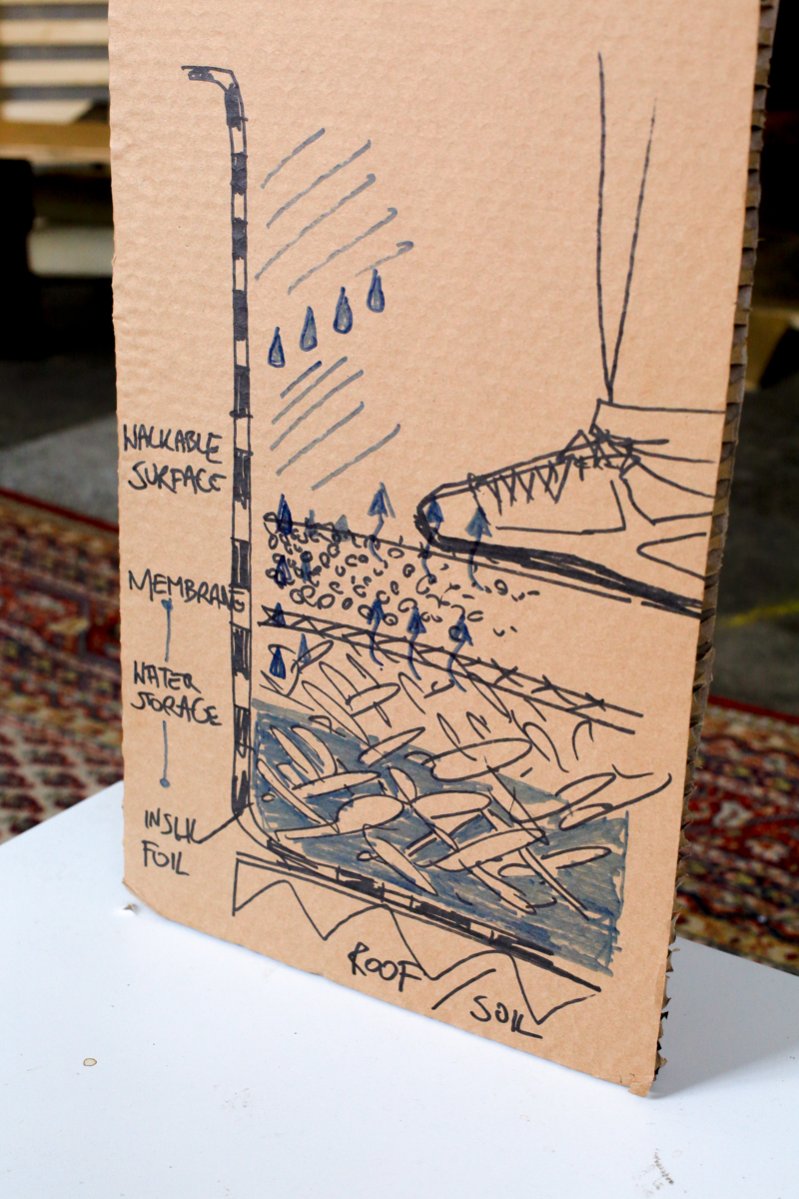 WALKABLE
SURFACE
MEMBRANE
WATER
STORAGE
FOIL
ROOF / SOIL